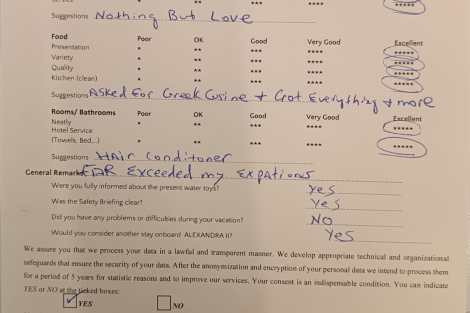 ** *** **** *****
Suggestions Nothing But Love
Food Poor OK Good Very Good Excellent
Presentation * ** *** **** *****
Variety * ** *** **** *****
Quality * ** *** **** *****
Kitchen (clean) * ** *** **** *****
Suggestions Asked For Greek Cusine + Got Everything + more
Rooms/ Bathrooms Poor OK Good Very Good Excellent
Neatly * ** *** *****
Hotel Service
(Towels, Bed...) * ** *** **** *****
Suggestions HAir Conditoner
General Remarks FAR Exceeded my Expations
Were you fully informed about the present water toys? yes
Was the Safety Briefing clear? Yes
Did you have any problems or difficulties during your vacation? NO
Would you consider another stay onboard ALEXANDRA II? Yes
We assure you that we process your data in a lawful and transparent manner. We develop appropriate technical and organizational
safeguards that ensure the security of your data. After the anonymization and encryption of your personal data we intend to process them
for a period of 5 years for statistic reasons and to improve our services. Your consent is an indispensable condition. You can indicate
YES or NO at the ticked boxes:
YES NO